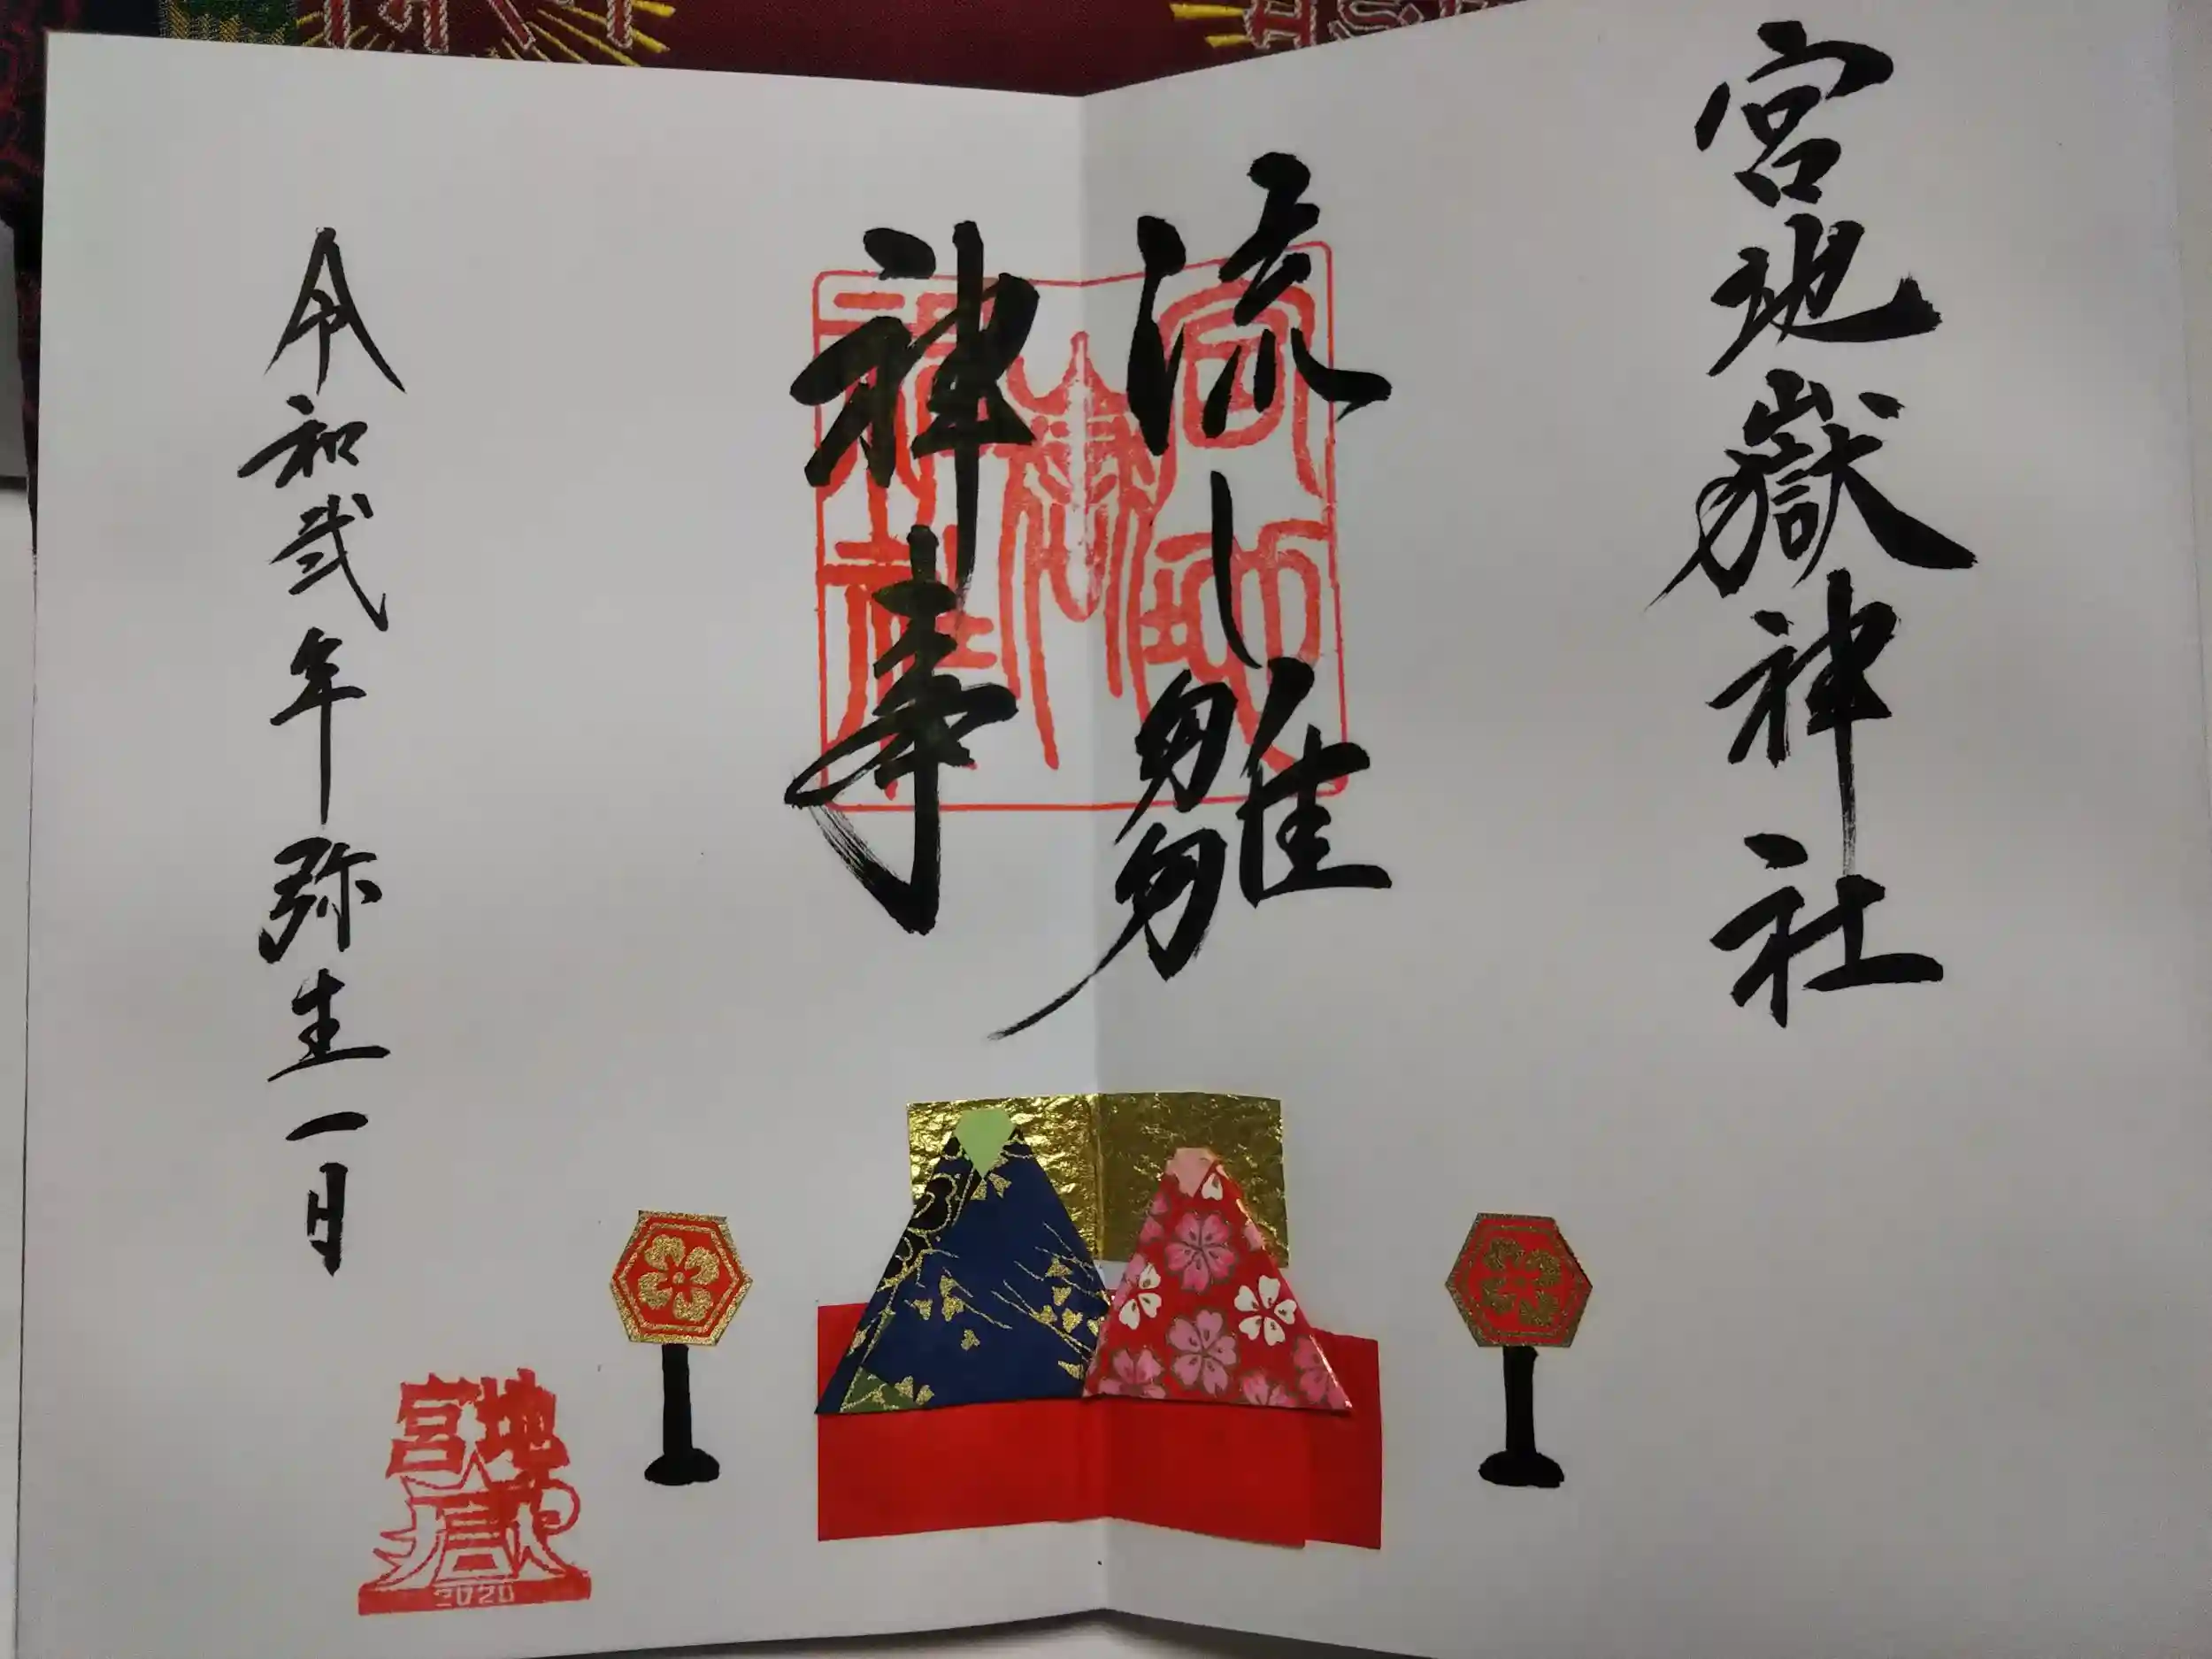 宮地嶽神社
流し雛
神事
令和弐年弥生一日
宮地嶽神社
宮地嶽
2020